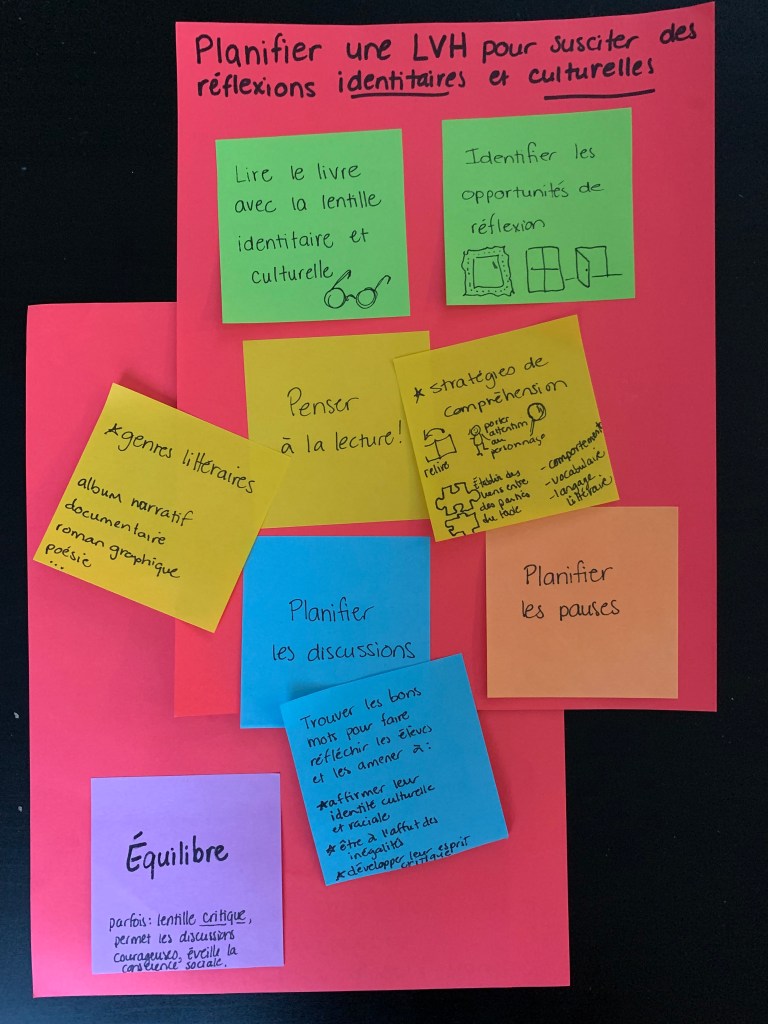 Planifier une LVH pour susciter des
réflexions identitaires et culturelles
Lire le livre
avec la lentille
identitaire et
culturelle
Identifier les
opportunités de
réflexion
Penser
à la lecture!
*stratégies de
compréhension
relire
porter
attention
au
personnage
Établir des
liens entre
des parties
du texte
-comportement
-vocabulaire
-langage
littéraire
*genres littéraires
album narratif
documentaire
roman graphique
poésie
...
Planifier
les discussions
Planifier
les pauses
Trouver les bons
mots pour faire
réfléchir les élèves
et les amener à:
*affirmer leur
identité culturelle
et raciale
*être à l'affut des
inégalités
*développer leur esprit
critique
Équilibre
parfois: lentille critique,
permet les discussions
courageuses, éveille la
conscience sociale.